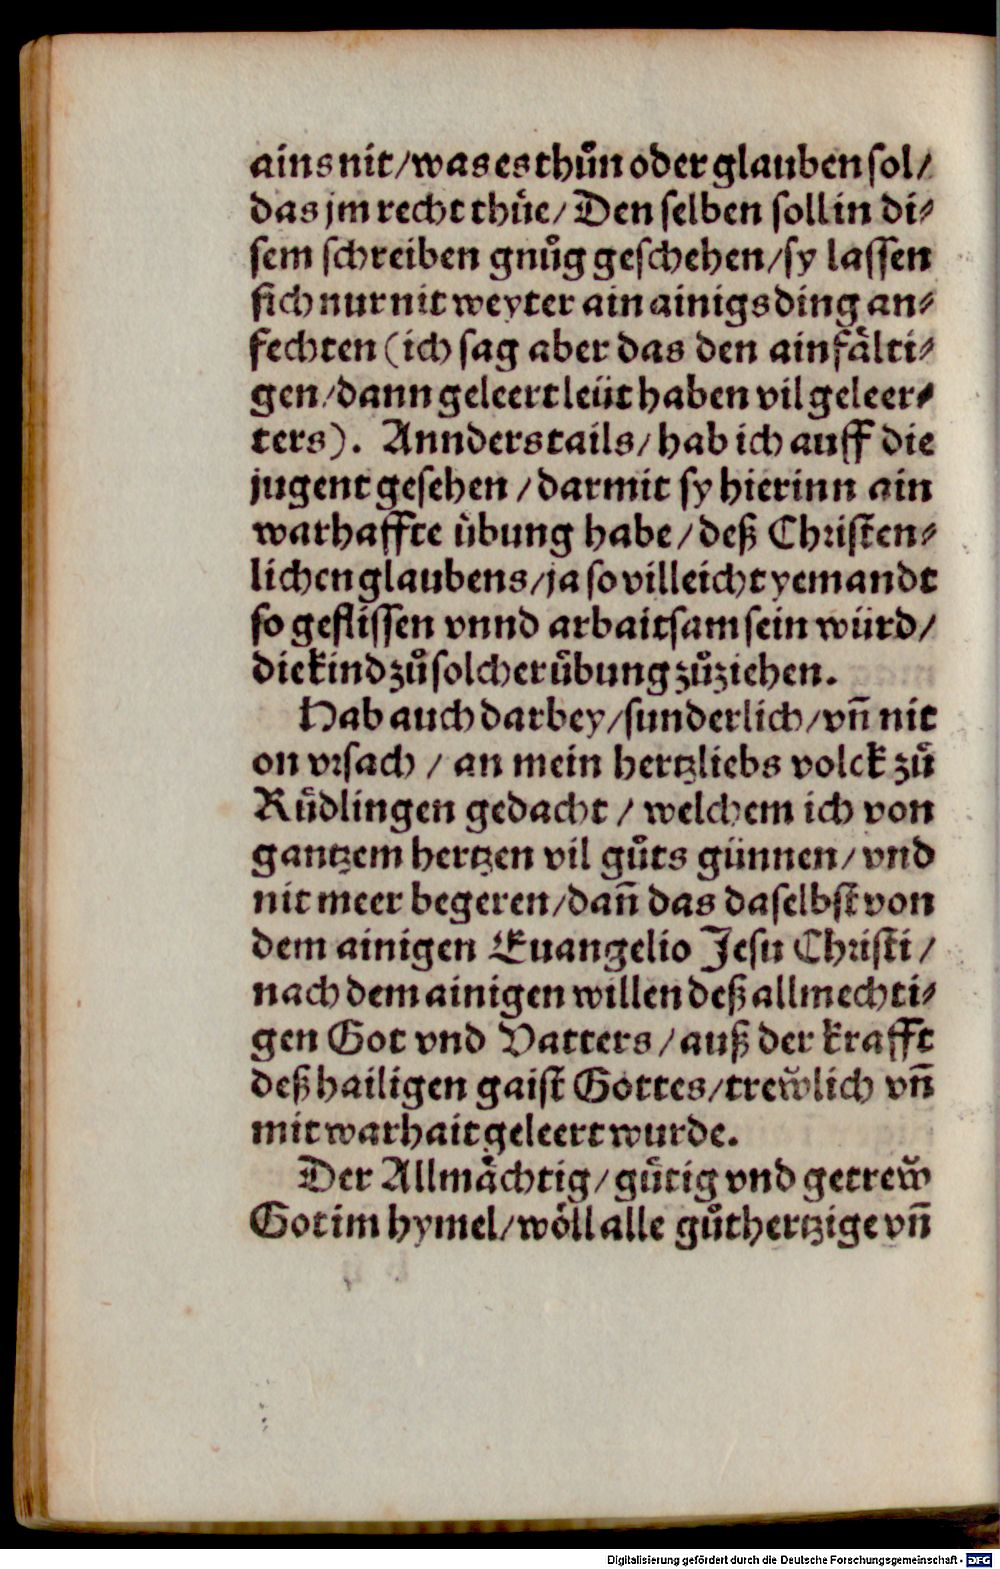 ains nit/was es thůn oder glauben sol/
das jm recht thüe/ Den selben soll in di⸗
sem schreiben gnůg geschehen/sy lassen
sich nur nit weyter ain ainigs ding an⸗
fechten (ich sag aber das den ainfälti⸗
gen/dann geleert leüt haben vil geleer⸗
ters). Annderstails/hab ich auff die
jugent gesehen/darmit sy hierinn ain
warhaffte übung habe/deß Christen⸗
lichen glaubens/ja so villeicht yemandt
so geflissen vnnd arbaitsam sein würd/
die kind zů solcher übung zůziehen.
Hab auch darbey/sunderlich/vñ nit
on vrsach/an mein hertzliebs volck zů
Rüdlingen gedacht/welchem ich von
gantzem hertzen vil gůts günnen/vnd
nit meer begeren/dañ das daselbst von
dem ainigen Euangelio Jesu Christi/
nach dem ainigen willen deß allmechti⸗
gen Got vnd Vatters/auß der krafft
deß hailigen gaist Gottes/trewlich vñ
mit warhait geleert wurde.
Der Allmächtig/gütig vnd getrew
Got im hymel/wöll alle gůthertzige vñ
Digitalisierung gefördert durch die Deutsche Forschungsgemeinschaft - DFG